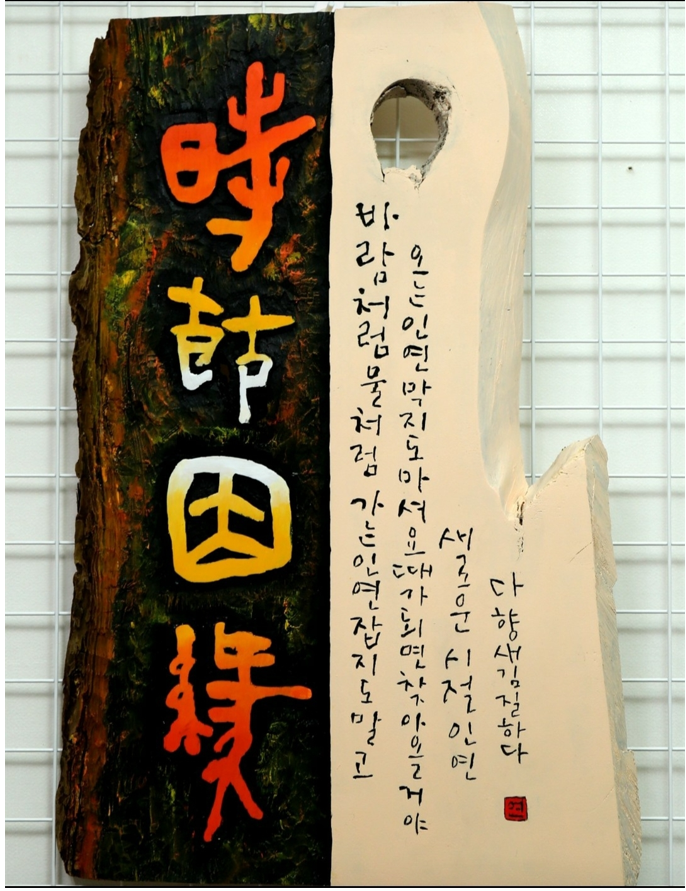 時節因緣
바람처럼물처럼 가는인연잡지도말고
오는인연막지도마셔요때가되면찾아올거야
새로운 시절인연
다향새김질하다